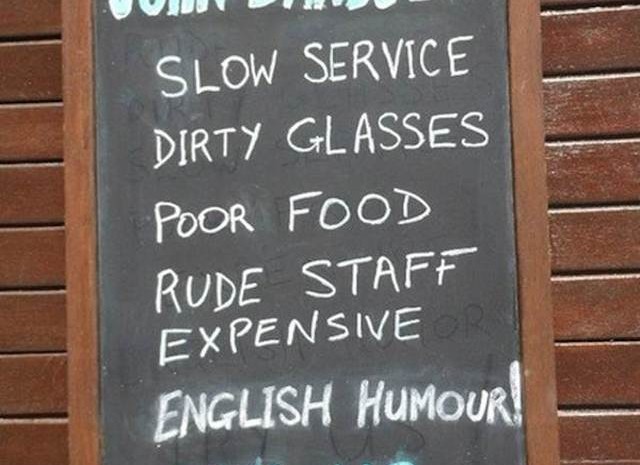 SLOW SERVICE
DIRTY GLASSES
POOR FOOD
RUDE STAFF
EXPENSIVE
ENGLISH HUMOUR!